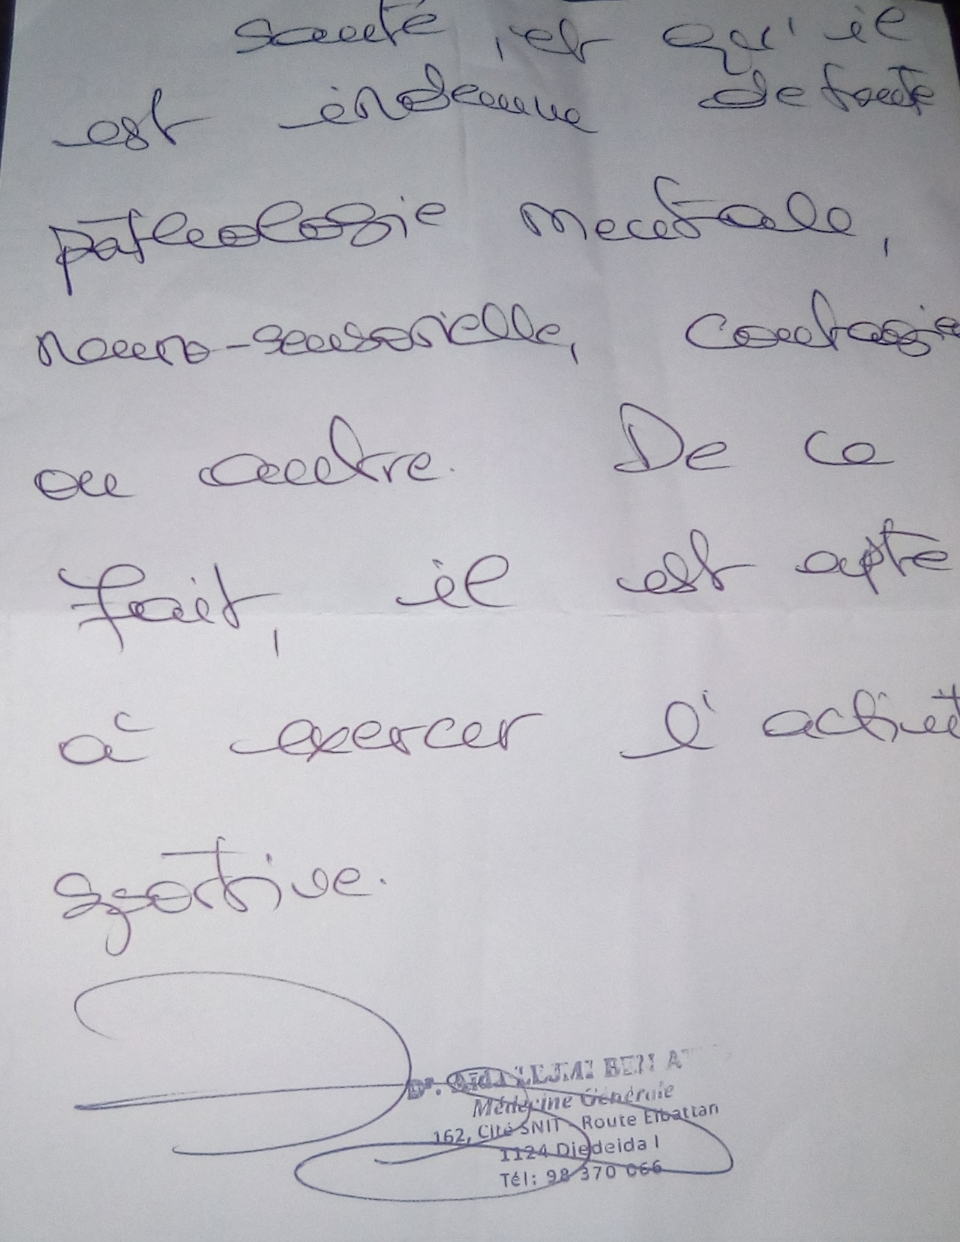 santé, et qu'il
est indemne de toute
pathologie mentale,
neuro-sensorielle, contagie
ou autre. De ce
fait, il est apte
à exercer l'activit
sportive.
Dr. Aïda LEJMI BEN A
Médecine Générale
162, Cité SNIT Route Elbattan
1124 Djedeida I
Tél: 98 370 066